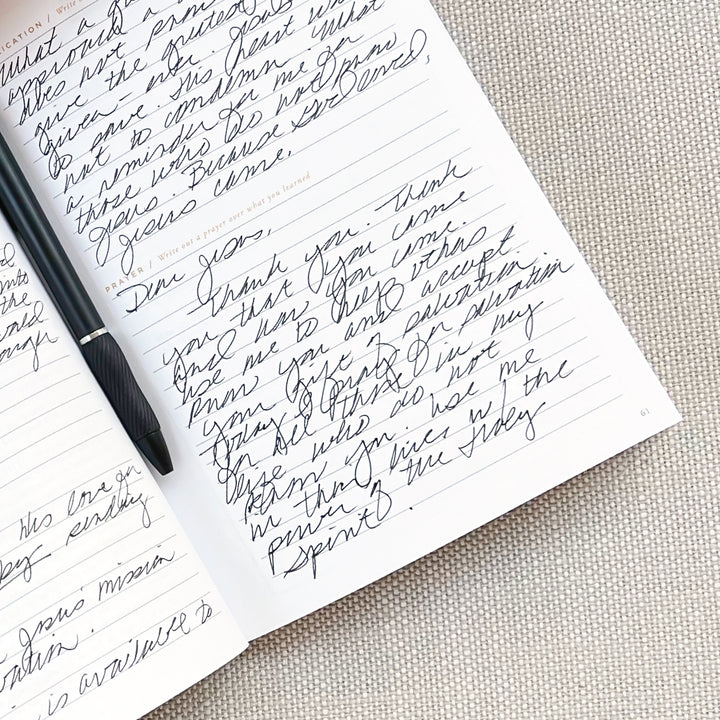 the
ough
His love in
by sending
Jesus' mission
is available to
ICATION / Write
What a
approved a
does not
give the
given – ever. Jesus
to save. His heart was
not to condemn. What
a reminder for me for
those who do not know
Jesus. Because God loved,
Jesus came.
PRAYER / Write out a prayer over what you learned
Dear Jesus,
Thank you. Thank
you that you came
and how you came.
Use me to help others
know you and accept
your gift of salvation.
Today I pray for salvation
for all those in my
life who do not
know you. Use me
in their lives w/ the
power of the Holy
Spirit.
61